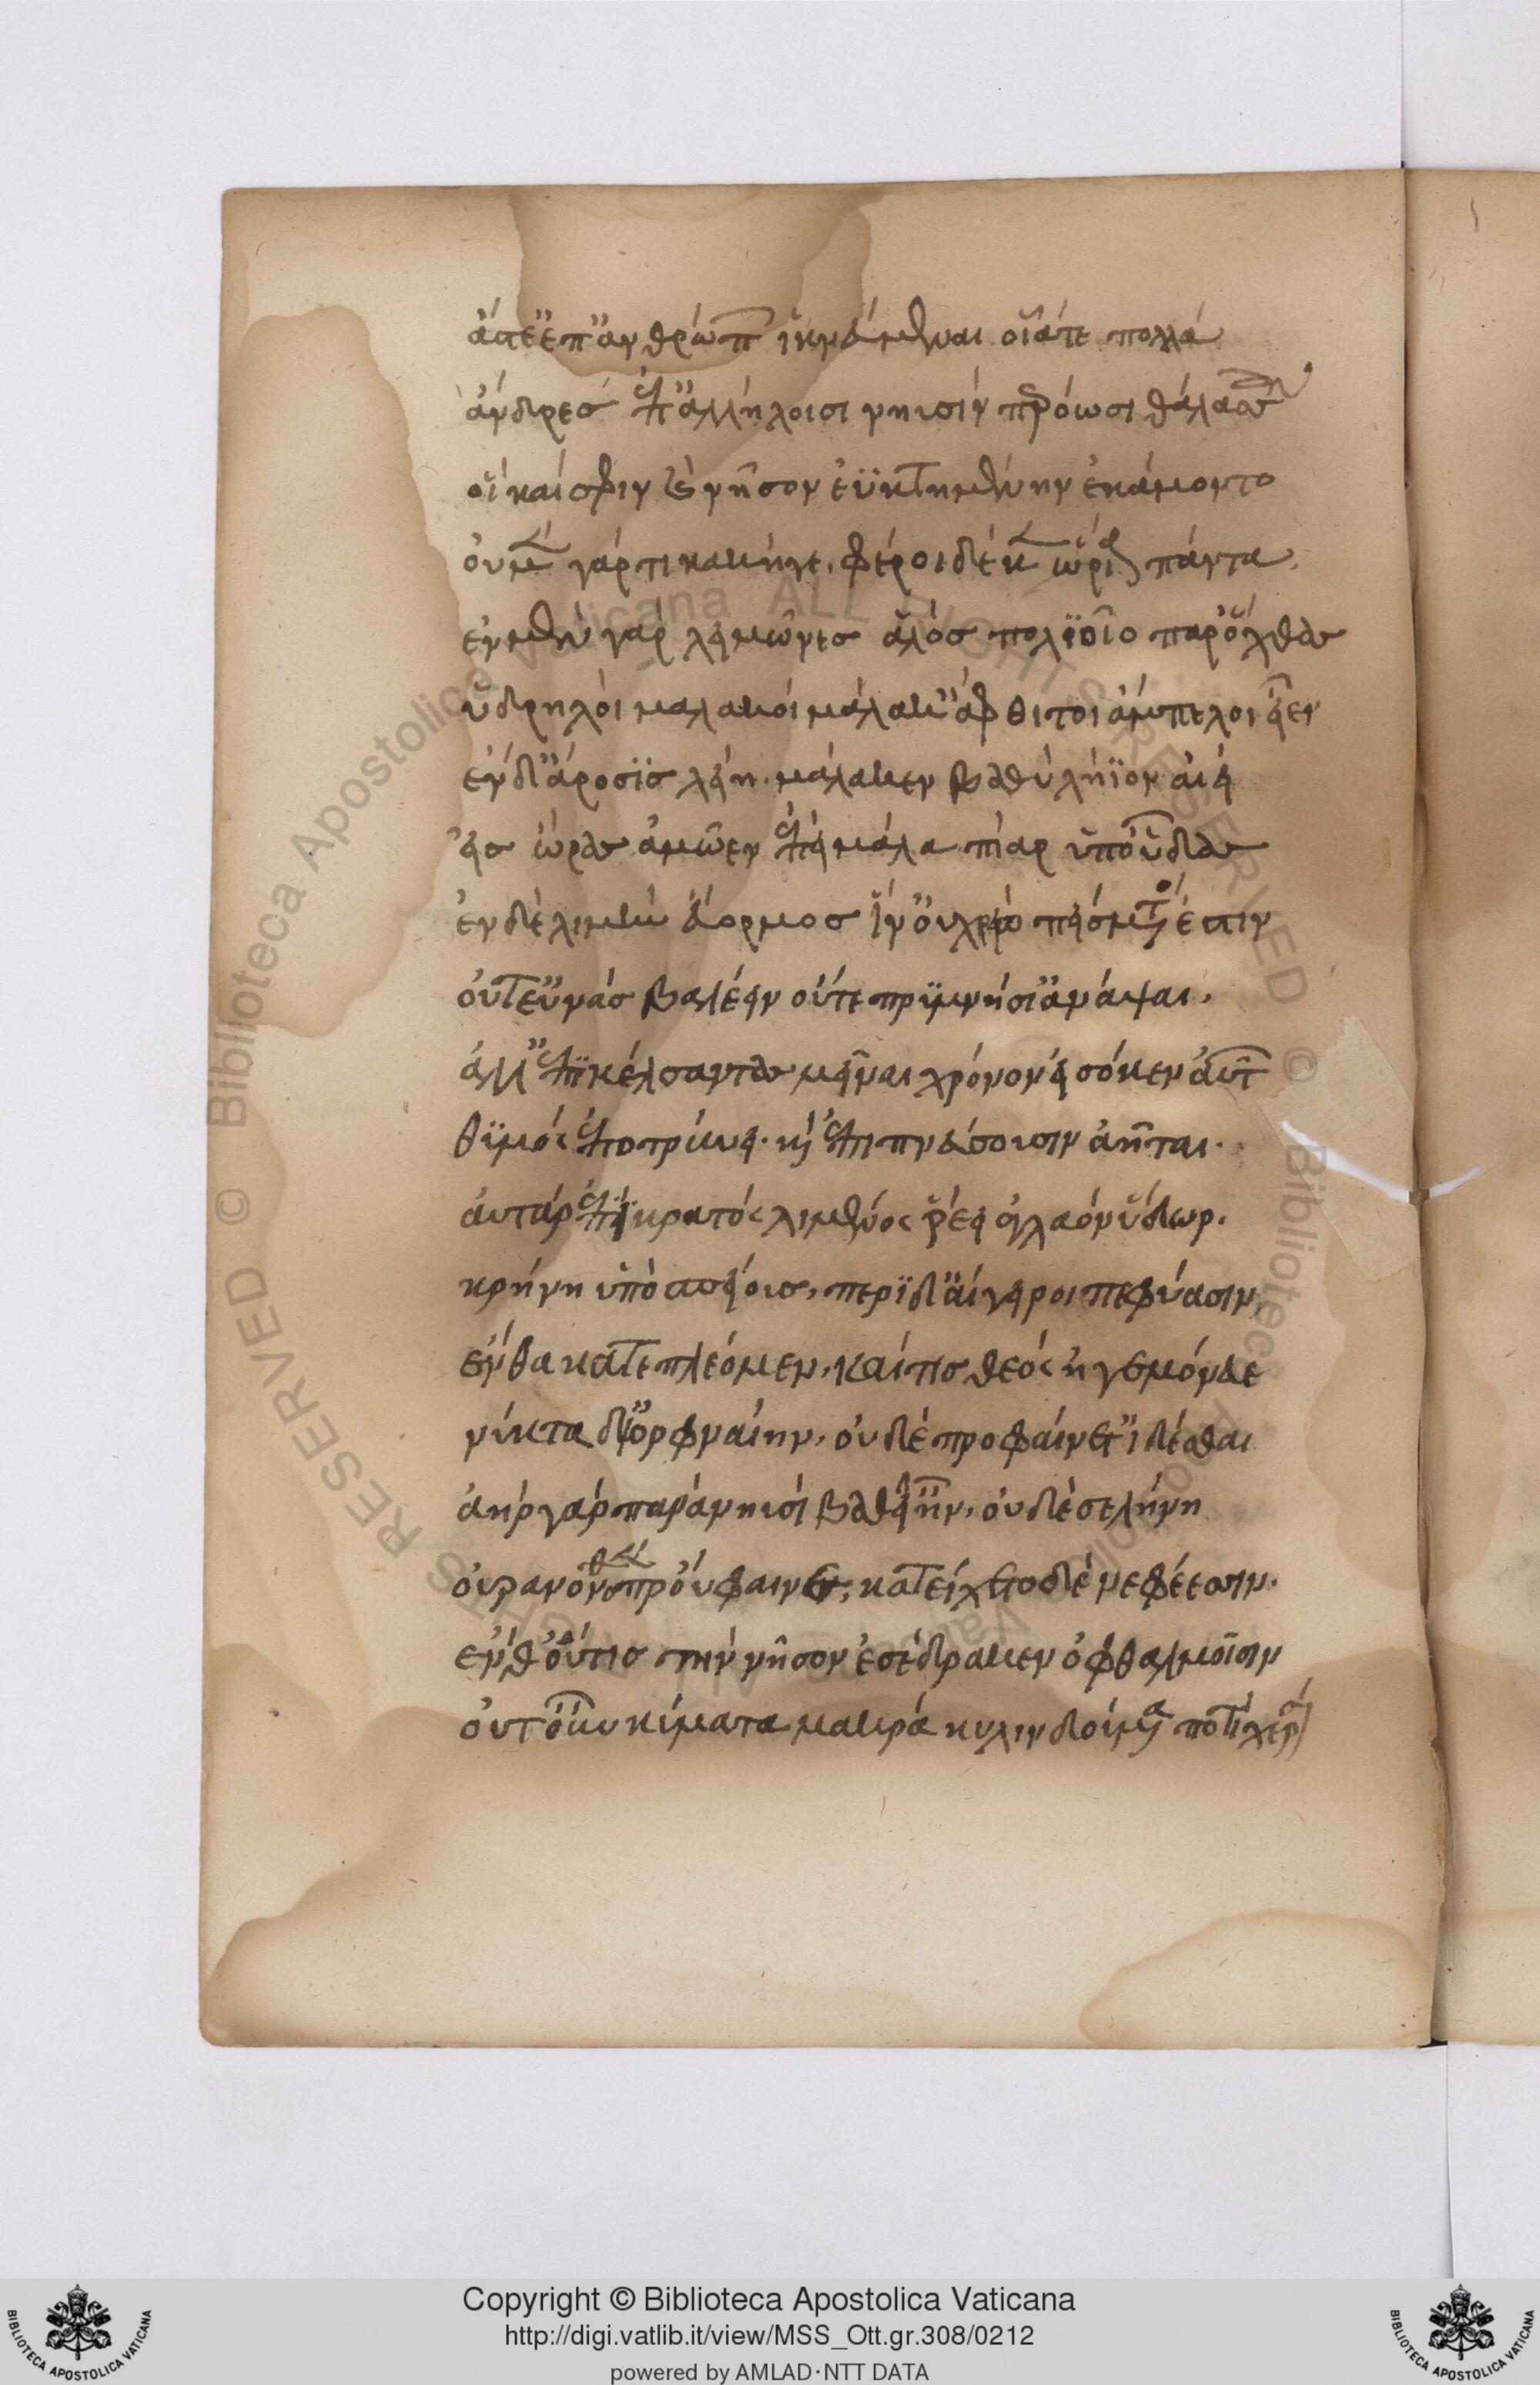 ἄστε ἐπ' ἀνθρώπ ἱκνεύμεναι οἷά τε πολλά
ἄνδρες ἐπ' ἀλλήλοισι νηυσὶν περόωσι θάλασσαν
οἵ καί σφιν καὶ νῆσον ἐϋκτημένην ἐκάμοντο
οὐ μὲν γάρ τι κακή γε, φέροι δέ κεν ὥρια πάντα,
ἐν μὲν γὰρ λειμῶνες ἁλὸς πολιοῖο παρ' ὄχθας
ὑδρηλοὶ μαλακοί μάλα κ' ἄφθιτοι ἄμπελοι εἶεν
ἐν δ' ἄροσις λείη. μάλα κεν βαθὺ λήϊον αἰεὶ
εἰς ὥρας ἀμῷεν ἐπεὶ μάλα πῖαρ ὑπ' οὖδας
ἐν δὲ λιμὴν εὔορμος ἵν' οὐ χρεὼ πείσματός ἐστιν
οὔτ' εὐνὰς βαλέειν οὔτε πρυμνήσι' ἀνάψαι,
ἀλλ' ἐπικέλσαντας μεῖναι χρόνον εἰσόκεν αὐτ
θυμὸς ἐποτρύνει. καὶ ἐπιπνεύσουσιν ἀῆται.
αὐτὰρ ἐπὶ κρατὸς λιμένος ῥέει ἀγλαὸν ὕδωρ.
κρήνη ὑπὸ σπείους, περὶ δ' αἴγειροι πεφύασιν,
ἔνθα κατεπλέομεν, καί τις θεὸς ἡγεμόνευε
νύκτα δι' ὀρφναίην, οὐδὲ προφαίνετ' ἰδέσθαι
ἀὴρ γὰρ παρὰ νηυσὶ βαθεῖ' ἦν, οὐδὲ σελήνη
οὐρανόθεν προύφαινε, κατείχετο δὲ νεφέεσσιν.
ἔνθ' οὔτις τὴν νῆσον ἐσέδρακεν ὀφθαλμοῖσιν
οὔτ' οὖν κύματα μακρὰ κυλινδόμενα ποτὶ χέρσον
Copyright © Biblioteca Apostolica Vaticana
http://digi.vatlib.it/view/MSS_Ott.gr.308/0212
powered by AMLAD·NTT DATA